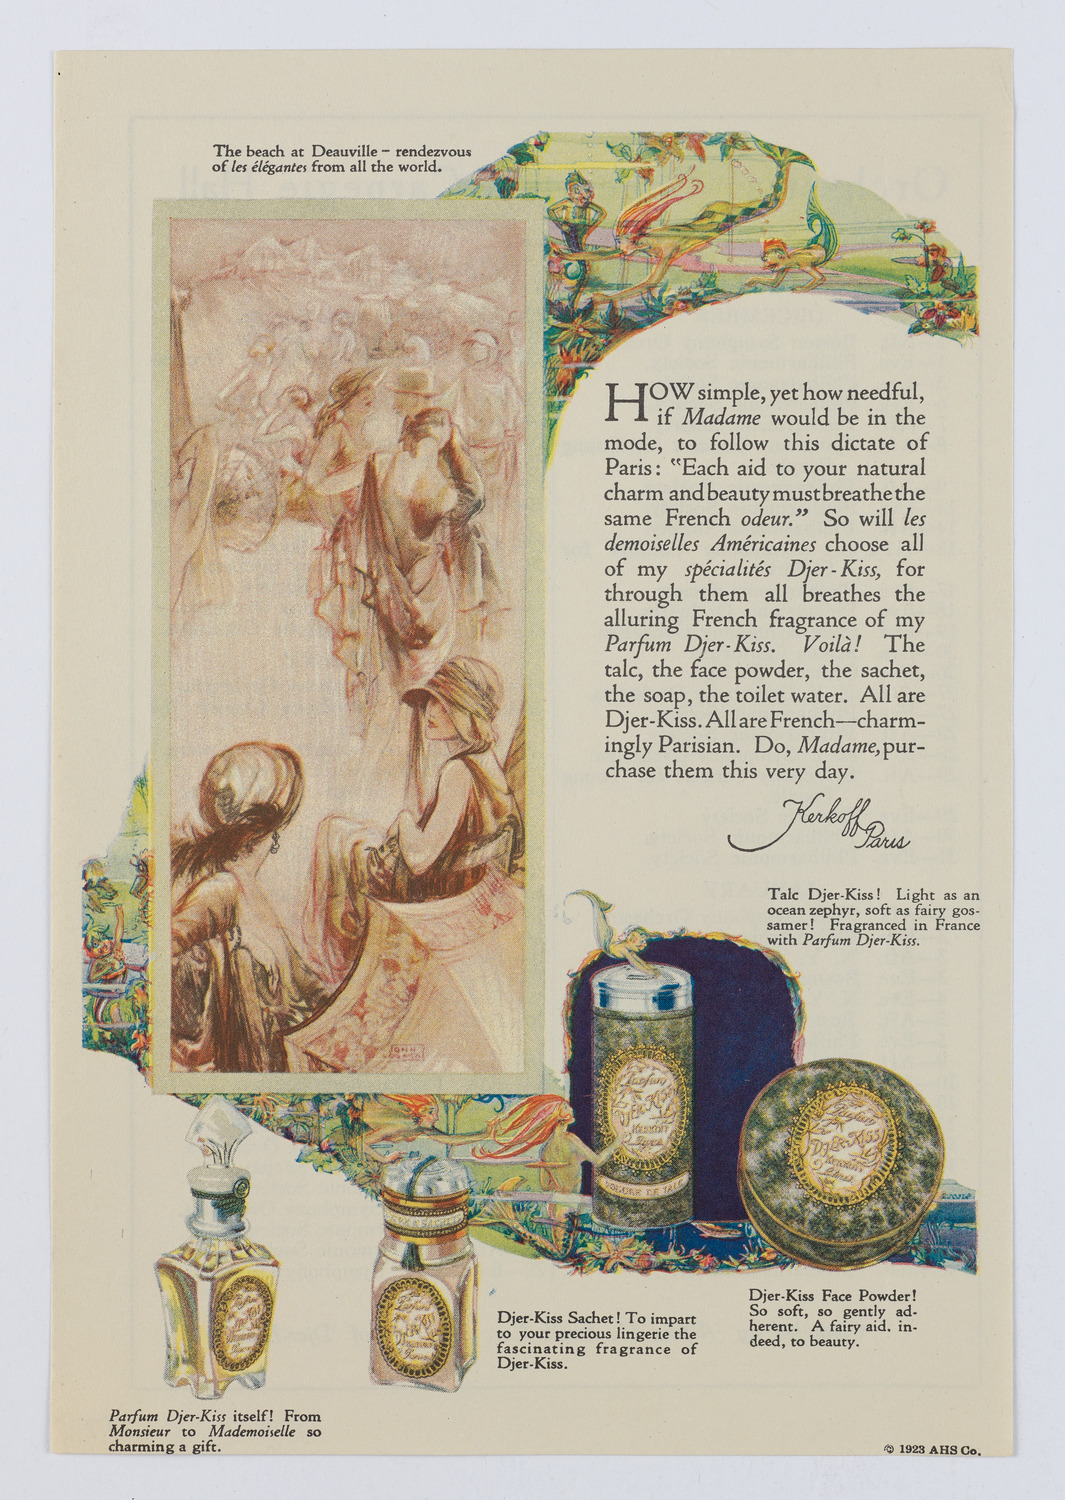 The beach at Deauville – rendezvous
of les élégantes from all the world.
HOW simple, yet how needful,
if Madame would be in the
mode, to follow this dictate of
Paris: “Each aid to your natural
charm and beauty must breathe the
same French odeur.” So will les
demoiselles Américaines choose all
of my spécialités Djer-Kiss, for
through them all breathes the
alluring French fragrance of my
Parfum Djer-Kiss. Voilà! The
talc, the face powder, the sachet,
the soap, the toilet water. All are
Djer-Kiss. All are French—charm-
ingly Parisian. Do, Madame, pur-
chase them this very day.
Kerkoff
Paris
Talc Djer-Kiss! Light as an
ocean zephyr, soft as fairy gos-
samer! Fragranced in France
with Parfum Djer-Kiss.
Parfum
DJER-KISS
KERKOFF
Paris
POUDRE DE TALC
Parfum
DJER-KISS
KERKOFF
Paris
Djer-Kiss Face Powder!
So soft, so gently ad-
herent. A fairy aid, in-
deed, to beauty.
Djer-Kiss Sachet! To impart
to your precious lingerie the
fascinating fragrance of
Djer-Kiss.
Parfum Djer-Kiss itself! From
Monsieur to Mademoiselle so
charming a gift.
© 1923 AHS Co.